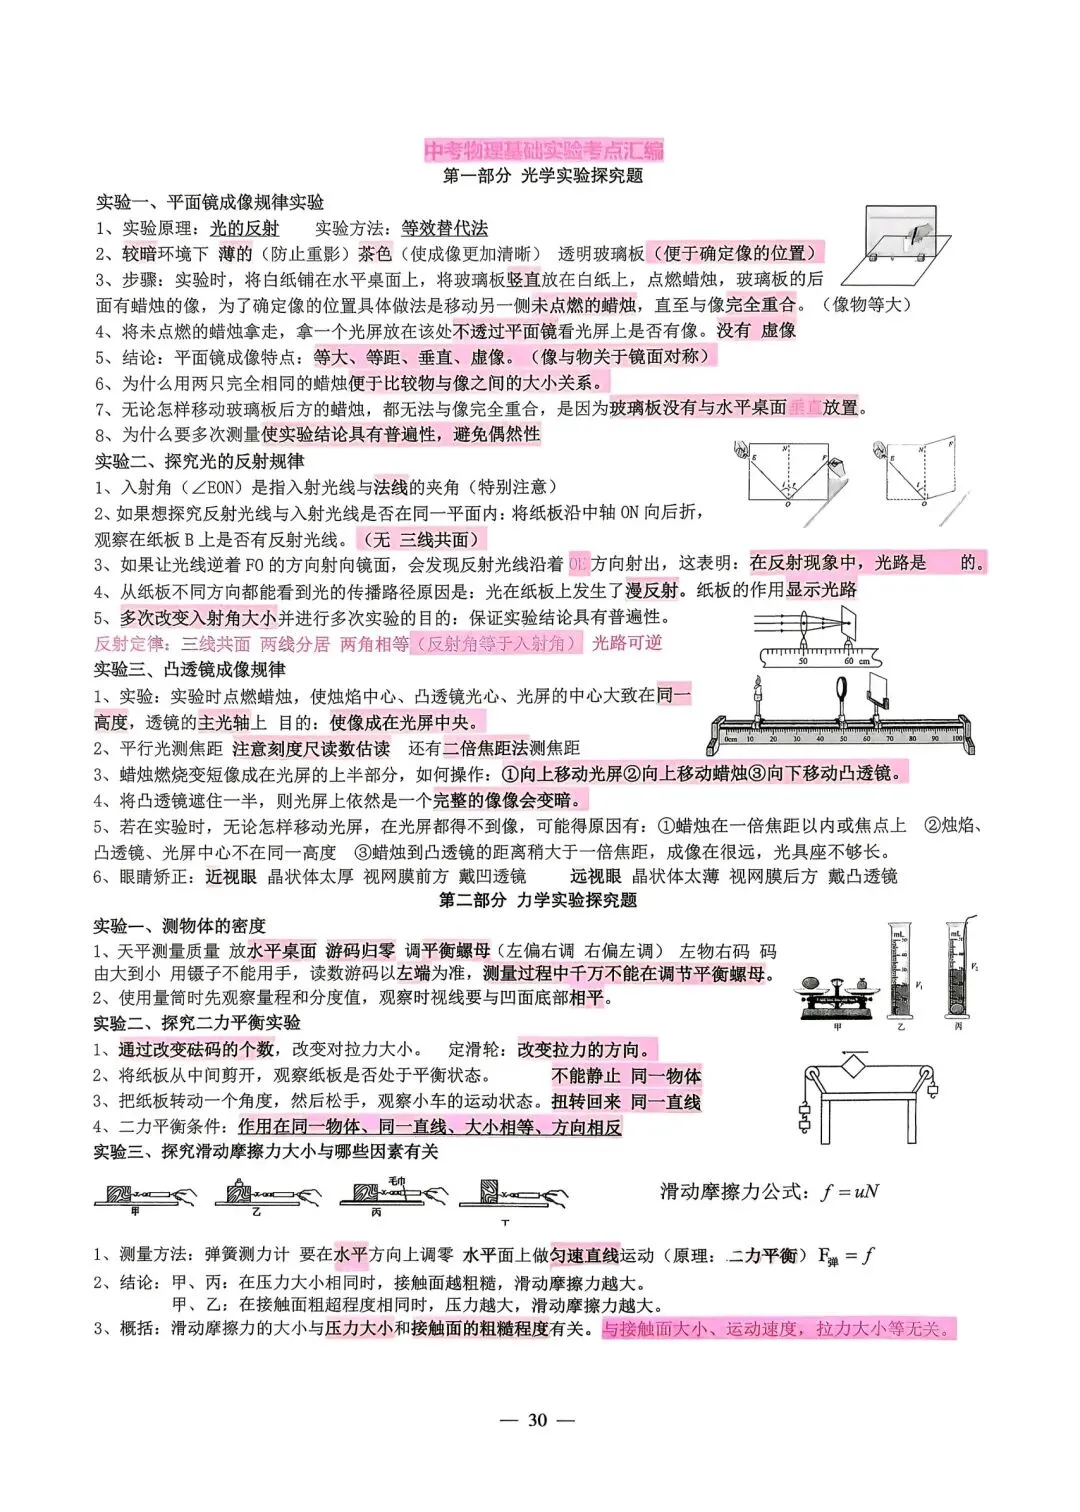 中考物理基础实验考点汇编
第一部分 光学实验探究题
实验一、平面镜成像规律实验
1、实验原理：光的反射 实验方法：等效替代法
2、较暗环境下 薄的（防止重影）茶色（使成像更加清晰） 透明玻璃板（便于确定像的位置）
3、步骤：实验时，将白纸铺在水平桌面上，将玻璃板竖直放在白纸上，点燃蜡烛，玻璃板的后
面有蜡烛的像，为了确定像的位置具体做法是移动另一侧未点燃的蜡烛，直至与像完全重合。（像物等大）
4、将未点燃的蜡烛拿走，拿一个光屏放在该处不透过平面镜看光屏上是否有像。没有 虚像
5、结论：平面镜成像特点：等大、等距、垂直、虚像。（像与物关于镜面对称）
6、为什么用两只完全相同的蜡烛便于比较物与像之间的大小关系。
7、无论怎样移动玻璃板后方的蜡烛，都无法与像完全重合，是因为玻璃板没有与水平桌面垂直放置。
8、为什么要多次测量使实验结论具有普遍性，避免偶然性
实验二、探究光的反射规律
1、入射角（∠EON）是指入射光线与法线的夹角（特别注意）
2、如果想探究反射光线与入射光线是否在同一平面内：将纸板沿中轴 ON 向后折，
观察在纸板 B 上是否有反射光线。（无 三线共面）
E N F i r O
E N F i O
3、如果让光线逆着 FO 的方向射向镜面，会发现反射光线沿着 OE 方向射出，这表明：在反射现象中，光路是 的。
4、从纸板不同方向都能看到光的传播路径原因是：光在纸板上发生了漫反射。纸板的作用显示光路
5、多次改变入射角大小并进行多次实验的目的：保证实验结论具有普遍性。
反射定律：三线共面 两线分居 两角相等（反射角等于入射角） 光路可逆
50 60 cm
实验三、凸透镜成像规律
1、实验：实验时点燃蜡烛，使烛焰中心、凸透镜光心、光屏的中心大致在同一
高度，透镜的主光轴上 目的：使像成在光屏中央。
0cm 10 20 30 40 50 60 70 80 90 100
2、平行光测焦距 注意刻度尺读数估读 还有二倍焦距法测焦距
3、蜡烛燃烧变短像成在光屏的上半部分，如何操作：①向上移动光屏②向上移动蜡烛③向下移动凸透镜。
4、将凸透镜遮住一半，则光屏上依然是一个完整的像像会变暗。
5、若在实验时，无论怎样移动光屏，在光屏都得不到像，可能得原因有：①蜡烛在一倍焦距以内或焦点上 ②烛焰、
凸透镜、光屏中心不在同一高度 ③蜡烛到凸透镜的距离稍大于一倍焦距，成像在很远，光具座不够长。
6、眼睛矫正：近视眼 晶状体太厚 视网膜前方 戴凹透镜 远视眼 晶状体太薄 视网膜后方 戴凸透镜
第二部分 力学实验探究题
实验一、测物体的密度
1、天平测量质量 放水平桌面 游码归零 调平衡螺母（左偏右调 右偏左调） 左物右码 码
由大到小 用镊子不能用手，读数游码以左端为准，测量过程中千万不能在调节平衡螺母。
2、使用量筒时先观察量程和分度值，观察时视线要与凹面底部相平。
mL V₁ mL V₂
甲 乙 丙
实验二、探究二力平衡实验
1、通过改变砝码的个数，改变对拉力大小。 定滑轮：改变拉力的方向。
2、将纸板从中间剪开，观察纸板是否处于平衡状态。 不能静止 同一物体
3、把纸板转动一个角度，然后松手，观察小车的运动状态。扭转回来 同一直线
4、二力平衡条件：作用在同一物体、同一直线、大小相等、方向相反
实验三、探究滑动摩擦力大小与哪些因素有关
毛巾
甲 乙 丙
滑动摩擦力公式：f = uN
1、测量方法：弹簧测力计 要在水平方向上调零 水平面上做匀速直线运动（原理：二力平衡）F弹 = f
2、结论：甲、丙：在压力大小相同时，接触面越粗糙，滑动摩擦力越大。
甲、乙：在接触面粗超程度相同时，压力越大，滑动摩擦力越大。
3、概括：滑动摩擦力的大小与压力大小和接触面的粗糙程度有关。与接触面大小、运动速度，拉力大小等无关。
— 30 —